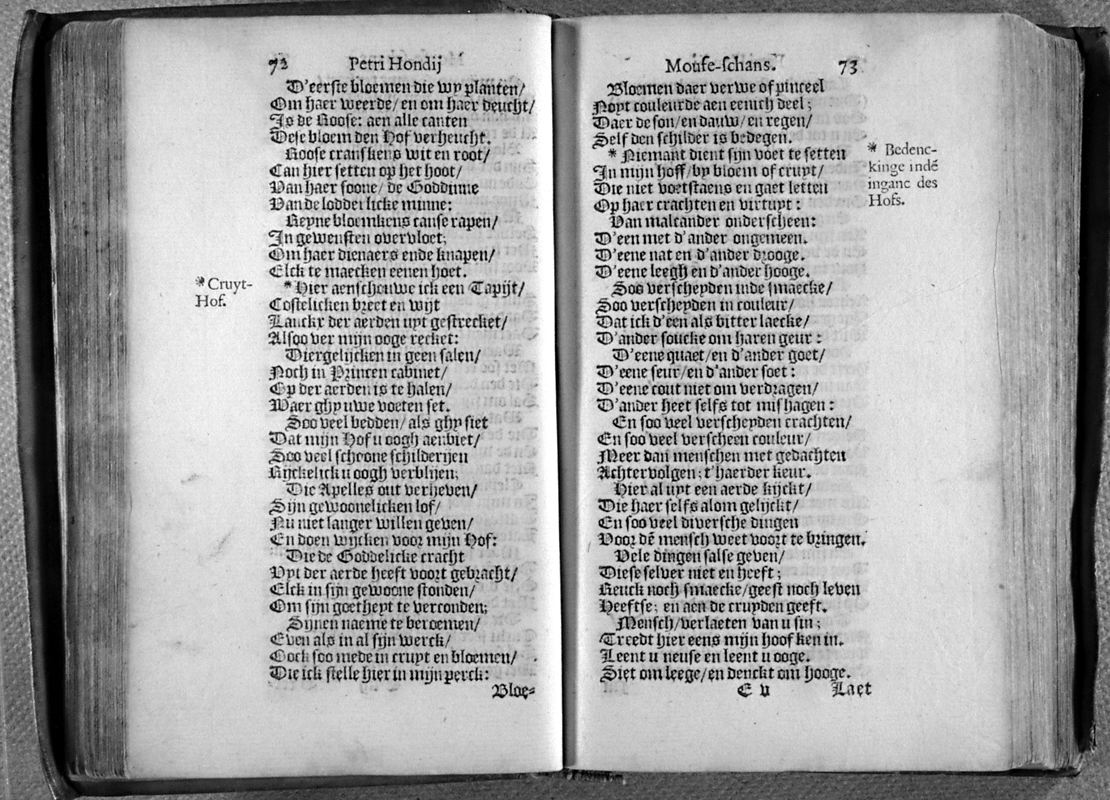 72 Petri Hondij
D'eerste bloemen die wy planten/
Om haer weerde/ en om haer deucht/
Is de Roose: aen alle canten
Dese bloem den Hof verheucht.
Roose cranskens wit en root/
Can hier setten op het hoot/
Van haer soone/ de Goddinne
Van de lodderlicke minne:
Reyne bloemkens canse rapen/
In gewensten overvloet;
Om haer dienaers ende knapen/
Elck te maecken eenen hoet.
* Cruyt-
Hof.
* Hier aenschouwe ick een Tapijt/
Costelicken breet en wijt
Lanckx der aerden uyt gestrecket/
Alsoo ver mijn ooge recket:
Diergelijcken in geen salen/
Noch in Princen cabinet/
Op der aerden is te halen/
Waer ghy uwe voeten set.
Soo veel bedden/ als ghy siet
Dat mijn Hof u oogh aenbiet/
Soo veel schoone schilderijen
Rijckelick u oogh verblijen;
Die Apelles out verheven/
Sijn gewoonelicken lof/
Nu niet langer willen geven/
En doen wijcken voor mijn Hof:
Die de Goddelicke cracht
Uyt der aerde heeft voort gebracht/
Elck in sijn gewoone stonden/
Om sijn goetheyt te verconden;
Sijnen naeme te beroemen/
Even als in al sijn werck/
Oock soo mede in cruyt en bloemen/
Die ick stelle hier in mijn perck:
Bloe-
Moufe-schans. 73
Bloemen daer verwe of pinceel
Noyt couleurde aen eenich deel;
Daer de son/ en dauw/ en regen/
Self den schilder is bedegen.
* Bedenc-
kinge indē
inganc des
Hofs.
* Niemant dient sijn voet te setten
In mijn hoff/ by bloem of cruyt/
Die niet voetstaens en gaet letten
Op haer crachten en virtuyt:
Van malcander onderscheen:
D'een met d'ander ongemeen.
D'eene nat en d'ander drooge.
D'eene leegh en d'ander hooge.
Soo verscheyden inde smaecke/
Soo verscheyden in couleur/
Dat ick d'een als bitter laecke/
D'ander soucke om haren geur:
D'eene quaet/ en d'ander goet/
D'eene seur/ en d'ander soet:
D'eene cout niet om verdragen/
D'ander heet selfs tot mishagen:
En soo veel verscheyden crachten/
En soo veel verscheen couleur/
Meer dan menschen met gedachten
Achtervolgen; t'haerder keur.
Hier al uyt een aerde kijckt/
Die haer selfs alom gelijckt/
En soo veel diversche dingen
Voor dē mensch weet voort te bringen.
Vele dingen salse geven/
Diese selver niet en heeft;
Reuck noch smaecke/ geest noch leven
Heeftse; en aen de cruyden geeft.
Mensch/ verlaeten van u sin;
Treedt hier eens mijn hoofken in.
Leent u neuse en leent u ooge.
Siet om leege/ en denckt om hooge.
E v Laet